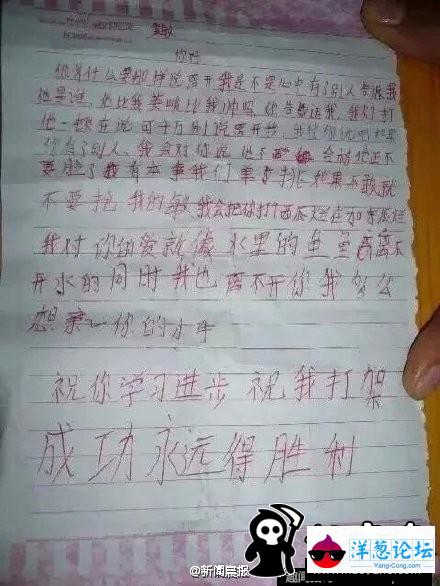 敏
你好
你为什么要那种说离开我是不是心中有了别人告诉我
他是谁,他比我英雄比我帅吗,你告诉我,我打
他一顿在说可千万别说离开我
你有了别人,我会对你说他不
要脸了我有本事我们单挑如果不敢就
不要抢我的敏我会把你打个西瓜烂
我对你的爱就像水里的鱼鱼离不
开水的同时我也离不开你我多么
想亲一亲你的小手
祝你学习进步祝我打架
成功永远得胜利
@新闻晨报
洋葱论坛
Yang-Cong.com